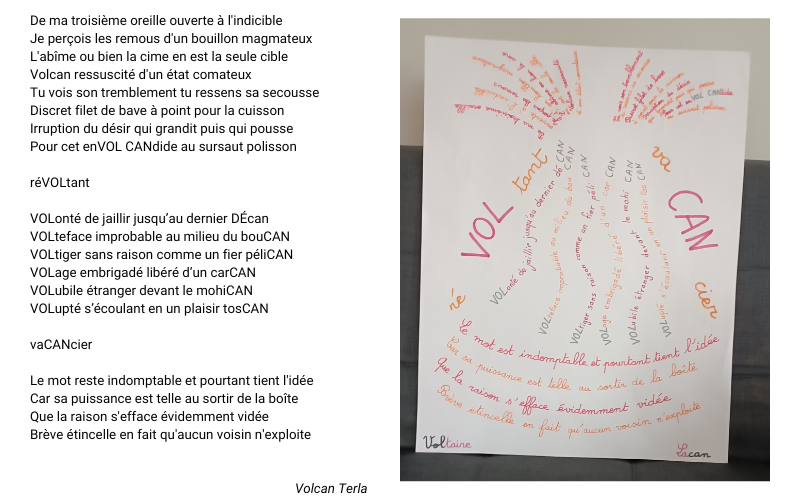 De ma troisième oreille ouverte à l'indicible
Je perçois les remous d'un bouillon magmateux
L'abîme ou bien la cime en est la seule cible
Volcan ressuscité d'un état comateux
Tu vois son tremblement tu ressens sa secousse
Discret filet de bave à point pour la cuisson
Irruption du désir qui grandit puis qui pousse
Pour cet enVOL CANdide au sursaut polisson
réVOLtant
VOLonté de jaillir jusqu’au dernier DÉcan
VOLteface improbable au milieu du bouCAN
VOLtiger sans raison comme un fier péliCAN
VOLage embrigadé libéré d’un carCAN
VOLubile étranger devant le mohiCAN
VOLupté s’écoulant en un plaisir tosCAN
vaCANcier
Le mot reste indomptable et pourtant tient l'idée
Car sa puissance est telle au sortir de la boîte
Que la raison s'efface évidemment vidée
Brève étincelle en fait qu'aucun voisin n'exploite
Volcan Terla
ré VOL tant
va CAN cier
VOLonté de jaillir jusqu'au dernier dé CAN
VOLteface improbable au milieu du bou CAN
VOLtiger sans raison comme un fier péli CAN
VOLage embrigadé libéré d'un car CAN
VOLubile étranger devant le mohi CAN
VOLupté s'écoulant en un plaisir tos CAN
Le mot est indomptable et pourtant tient l'idée
Car sa puissance est telle au sortir de la boîte
Que la raison s'efface évidemment vidée
Brève étincelle en fait qu'aucun voisin n'exploite
Voltaire
Lacan